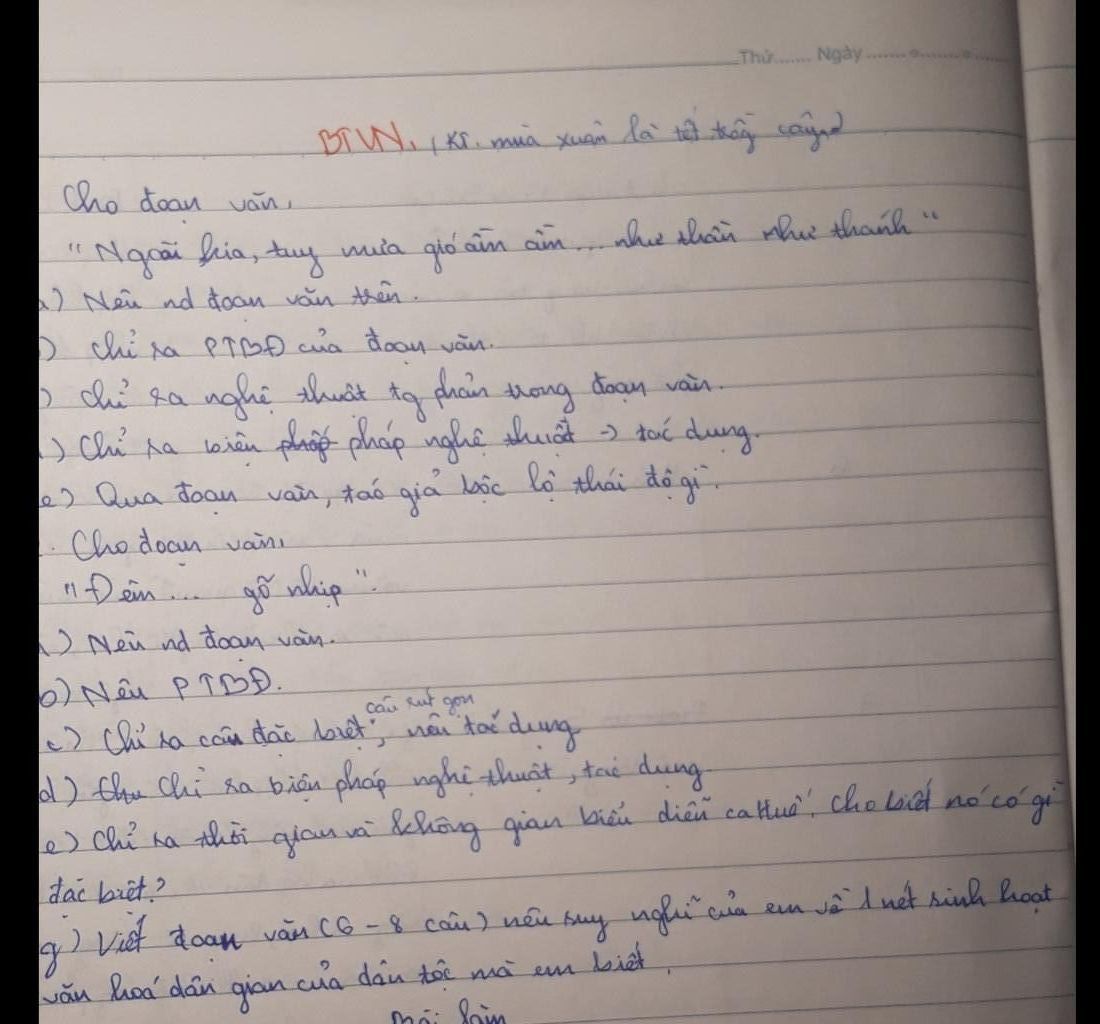 Thứ....... Ngày ..............
BTVN. (KT. mùa xuân là tết trồng cây)
Cho đoạn văn,
"Ngoài kia, tuy mưa gió ầm ầm ... như thần như thánh"
a) Nêu nd đoạn văn trên.
) Chỉ ra PTBĐ của đoạn văn.
) Chỉ ra nghệ thuật tg phản trong đoạn văn.
) Chỉ ra biện pháp nghệ thuật → tác dụng.
e) Qua đoạn văn, tác giả bộc lộ thái độ gì.
. Cho đoạn văn,
"Đêm ... gõ nhịp".
) Nêu nd đoạn văn.
b) Nêu PTBĐ.
câu rút gọn
c) Chỉ ra câu đặc biệt, nêu tác dụng
d) Chỉ ra biện pháp nghệ thuật, tác dụng
e) Chỉ ra thời gian và không gian biểu diễn ca Huế. Cho biết nó có gì
đặc biệt?
g) Viết đoạn văn (6 - 8 câu) nêu suy nghĩ của em về 1 nét sinh hoạt
văn hoá dân gian của dân tộc mà em biết.
làm